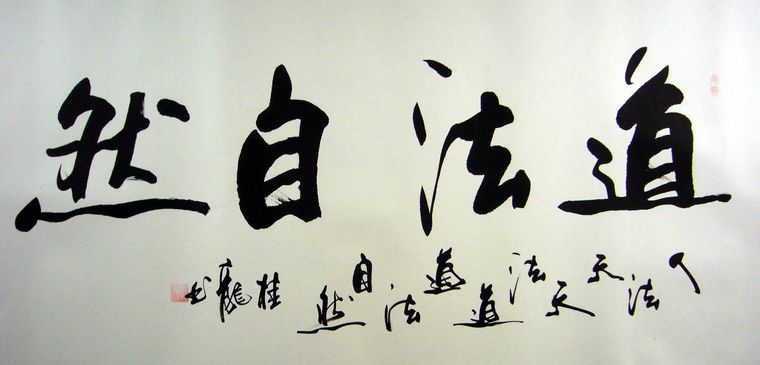 道法自然
人法天天法道道法自然 桂龍书